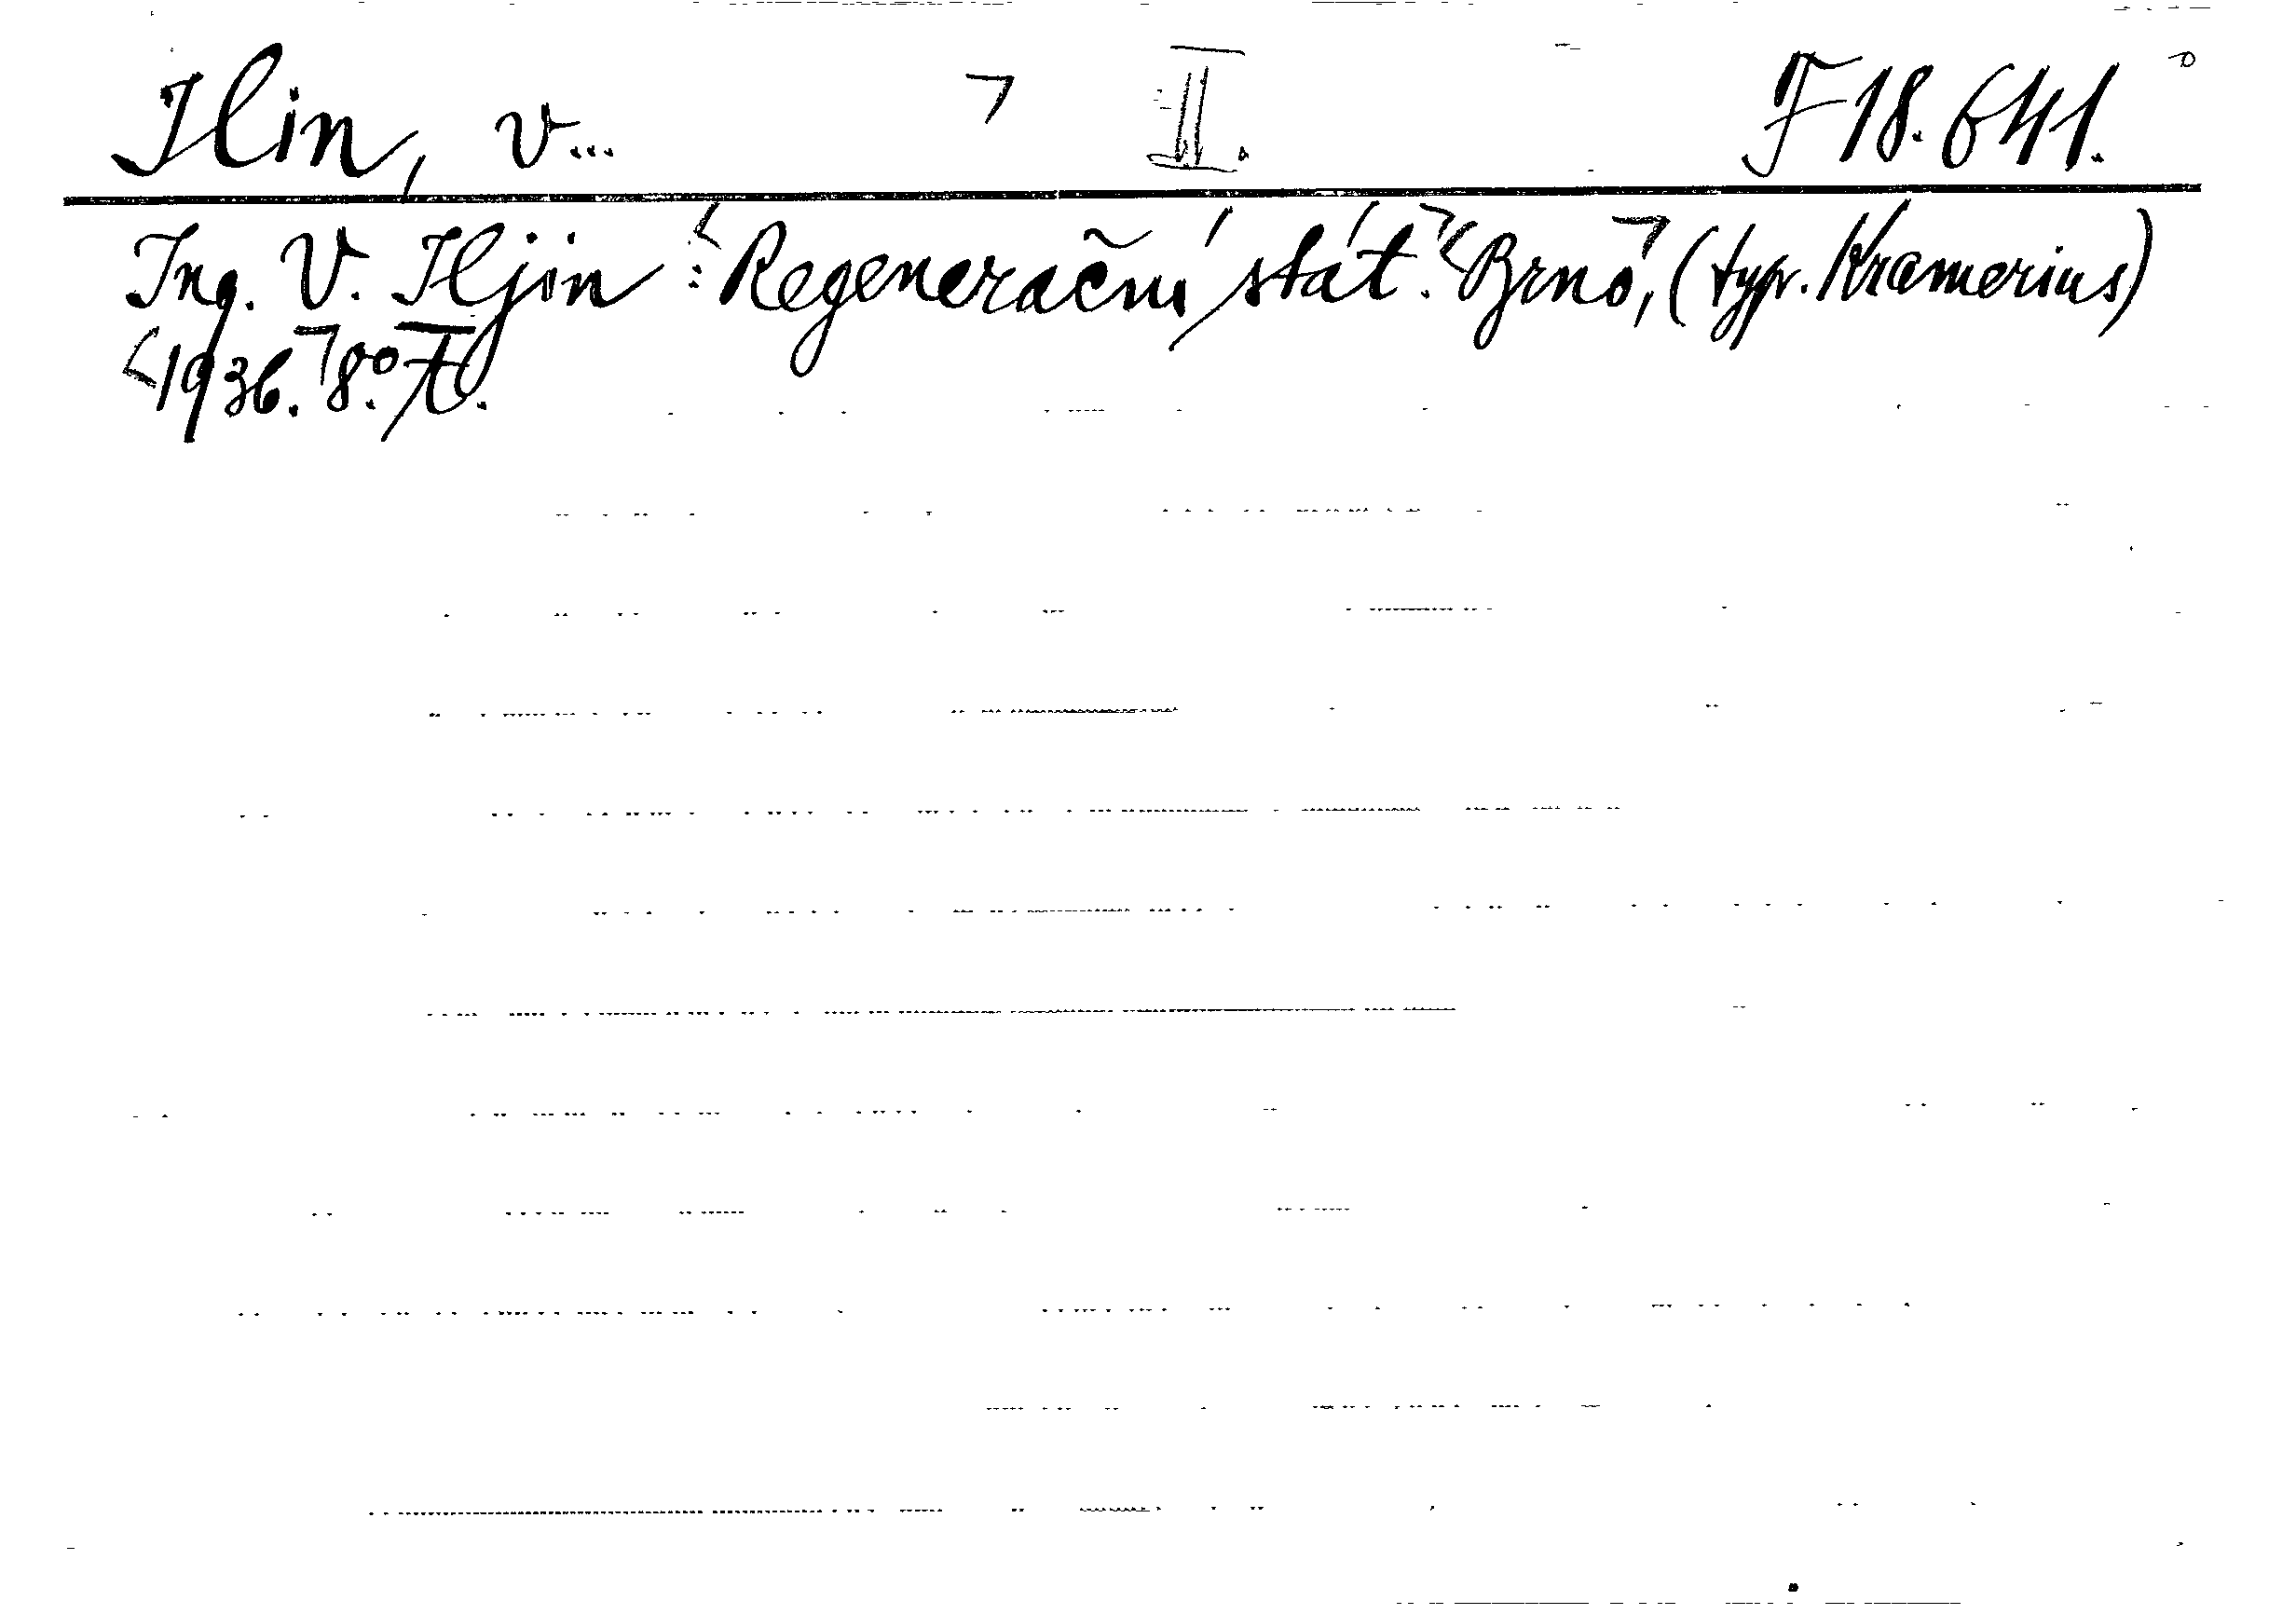 Ilin, V... ⌝ II. F 18.641.
Ing. V. Iljin : Regenerační stát. Brno, (typ. Kramerius)
1936. 8°.